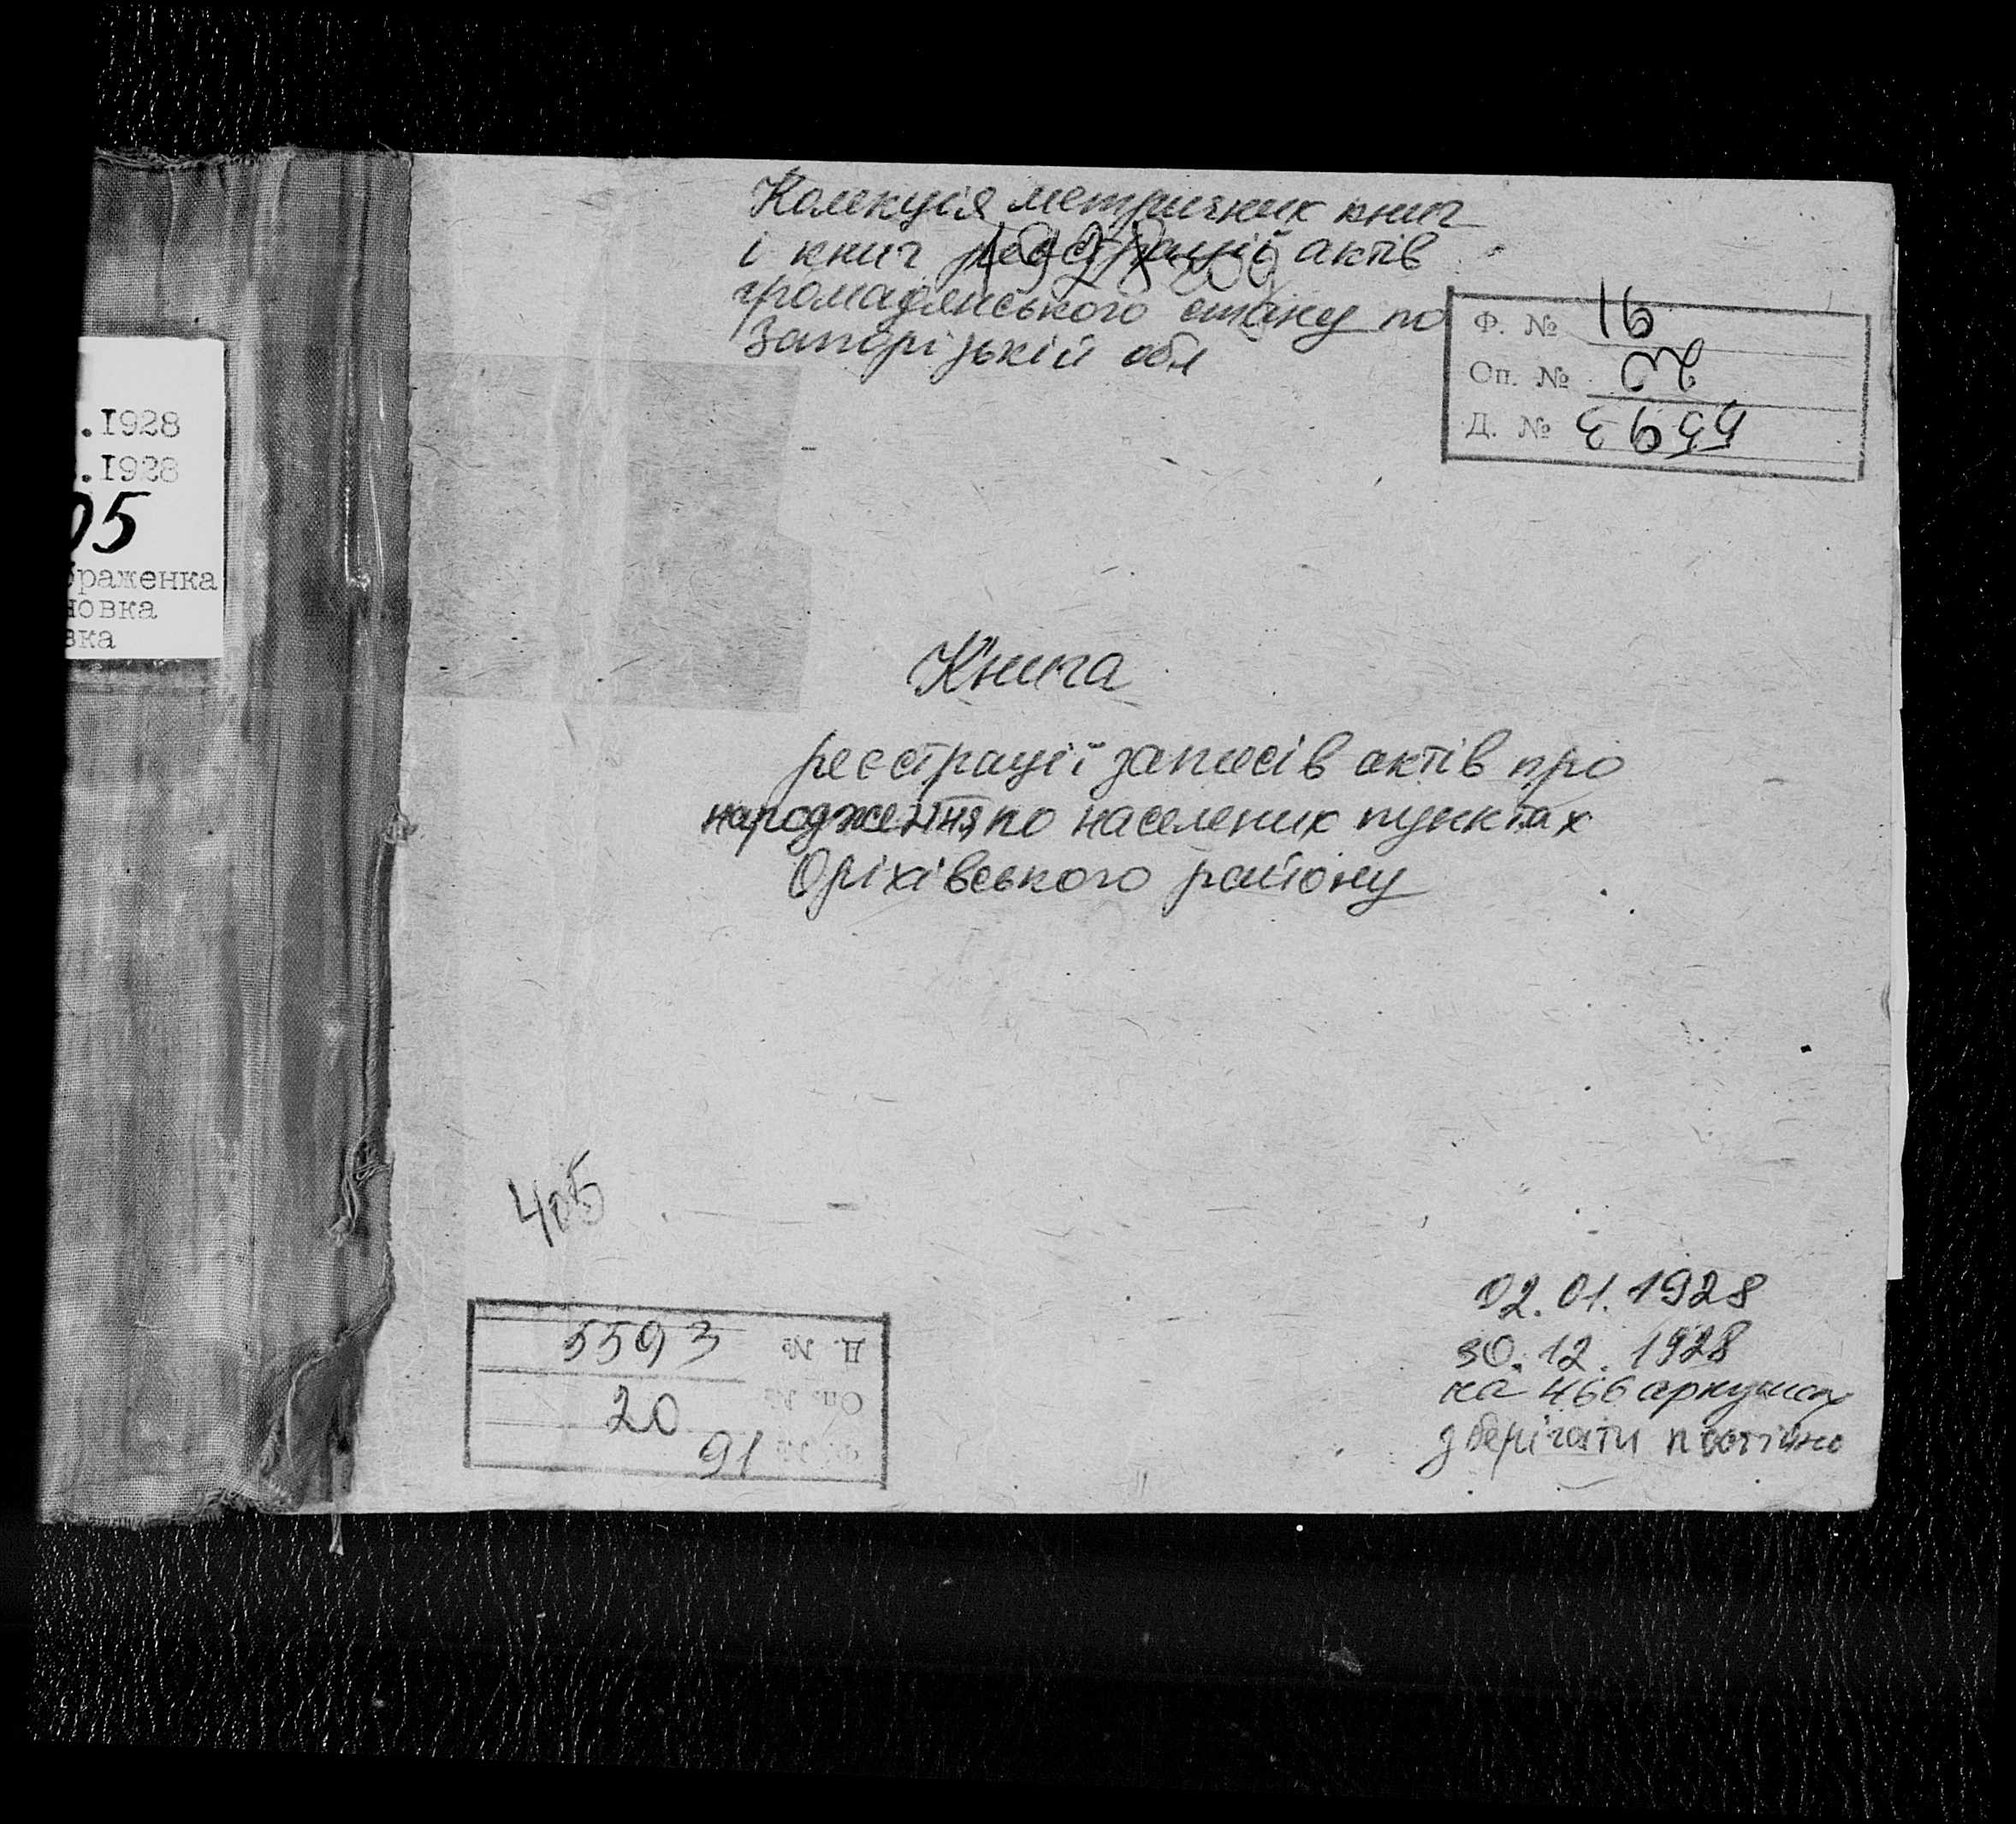 Колекція метричних книг
і книг реєстрації актів
1928 год
громадянського стану по
Запорізькій обл
Ф. № 91
Оп. № 20
Д. № 5593
.1928
.1928
05
браженка
новка
вка
Книга
реєстрації записів актів про
народження по населених пунктах
Оріхівського району
405
02.01.1928
30.12.1928
на 466 аркушах
зберігати постійно
Д. № 5593
Оп. № 20
Ф. № 91